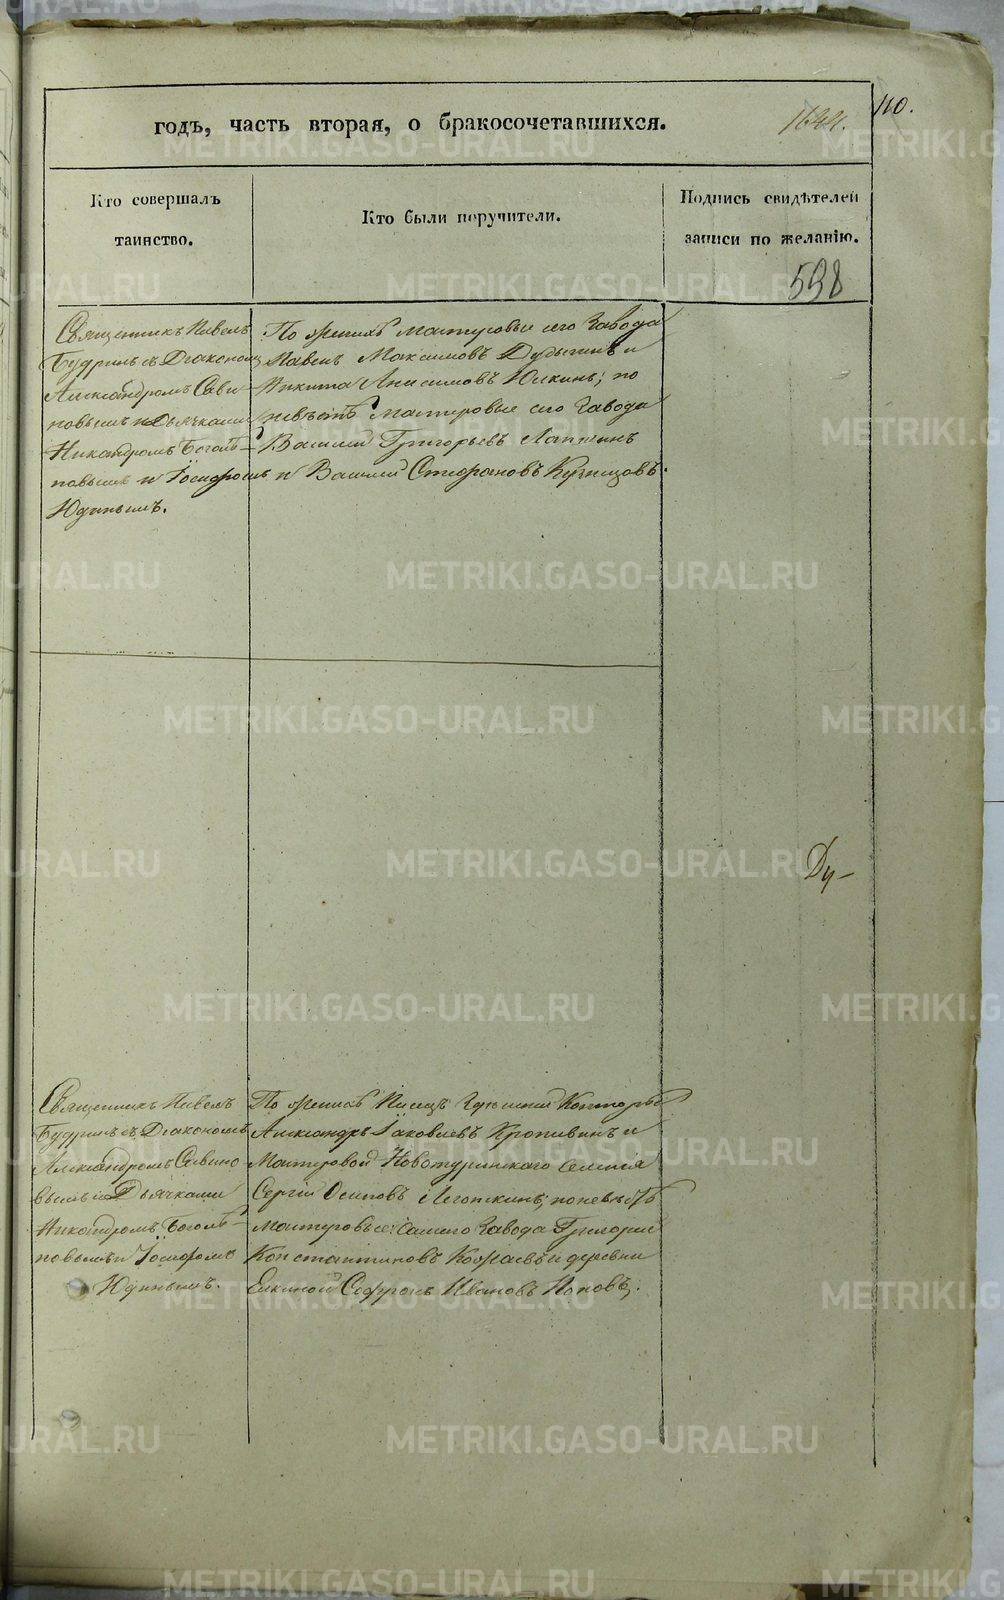 годъ, часть вторая, о бракосочетавшихся.
110.
Кто совершалъ таинство.
Кто были поручители.
Подпись свидѣтелей записи по желанію.
598
Священникъ Павелъ
Будринъ съ Діакономъ
Александромъ Сави-
новымъ и Дьячками
Никандромъ Боголѣ-
повымъ и Іосифомъ
Юдинымъ.
По женихѣ мастеровые сего Завода
Павелъ Максимовъ и
Никита Анисимовъ Юлкинъ; по
невѣстѣ мастеровые сего Завода
Василій Григорьевъ Лапкинъ
и Василій Стефановъ Кузнецовъ.
Ду-
Священникъ Павелъ
Будринъ съ Діакономъ
Александромъ Савино-
вымъ и Дьячками
Никандромъ Боголѣ-
повымъ и Іосифомъ
Юдинымъ.
По женихѣ Писецъ Конторы
Александръ Іаковлевъ Кропивинъ и
Мастеровой Новотуринскаго селенія
Сергій Осиповъ Леготкинъ; по невѣстѣ
Мастеровые: сего Завода Григорій
Константиновъ и деревни
Елкиной Софронъ Ивановъ Поповъ.
METRIKI.GASO-URAL.RU